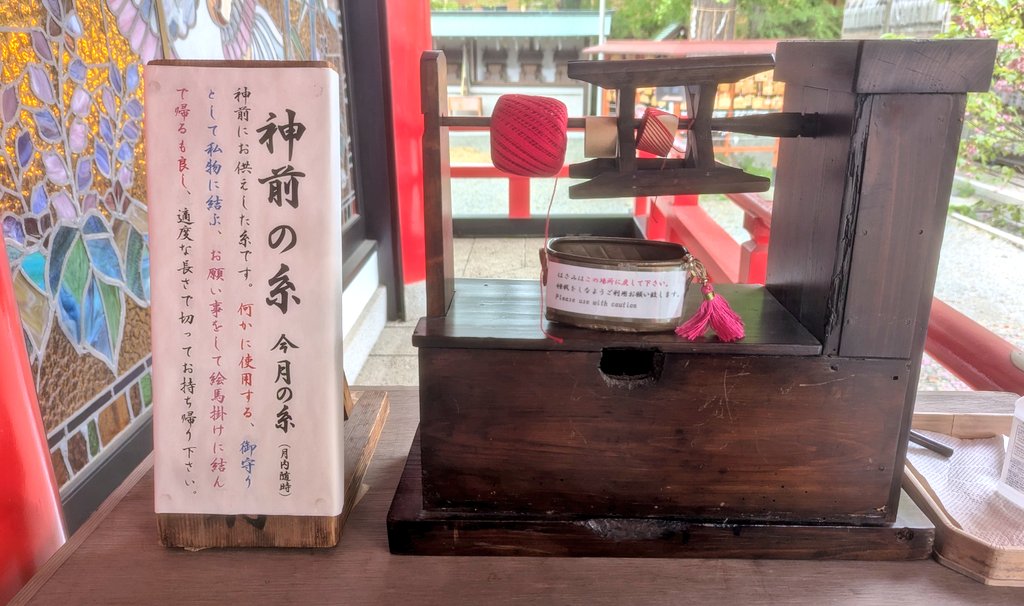 神前の糸 今月の糸(月内随時)
神前にお供えした糸です。何かに使用する、御守り
として私物に結ぶ、お願い事をして絵馬掛けに結ん
で帰るも良し、適度な長さで切ってお持ち帰り下さい。
はさみはこの場所に戻して下さい。
怪我をしなようご利用お願い致します。
Please use with caution